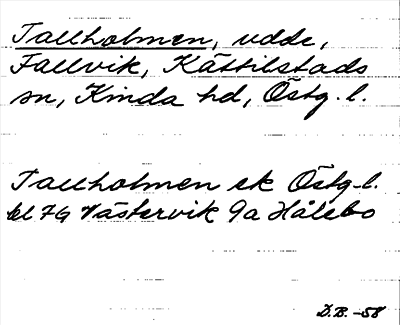 Tallholmen, udde,
Fallvik, Kättilstads
sn, Kinda hd, Östg. l.
Tallholmen ek Östg. l.
bl 7G Västervik 9a Hålebo
D.B. -58